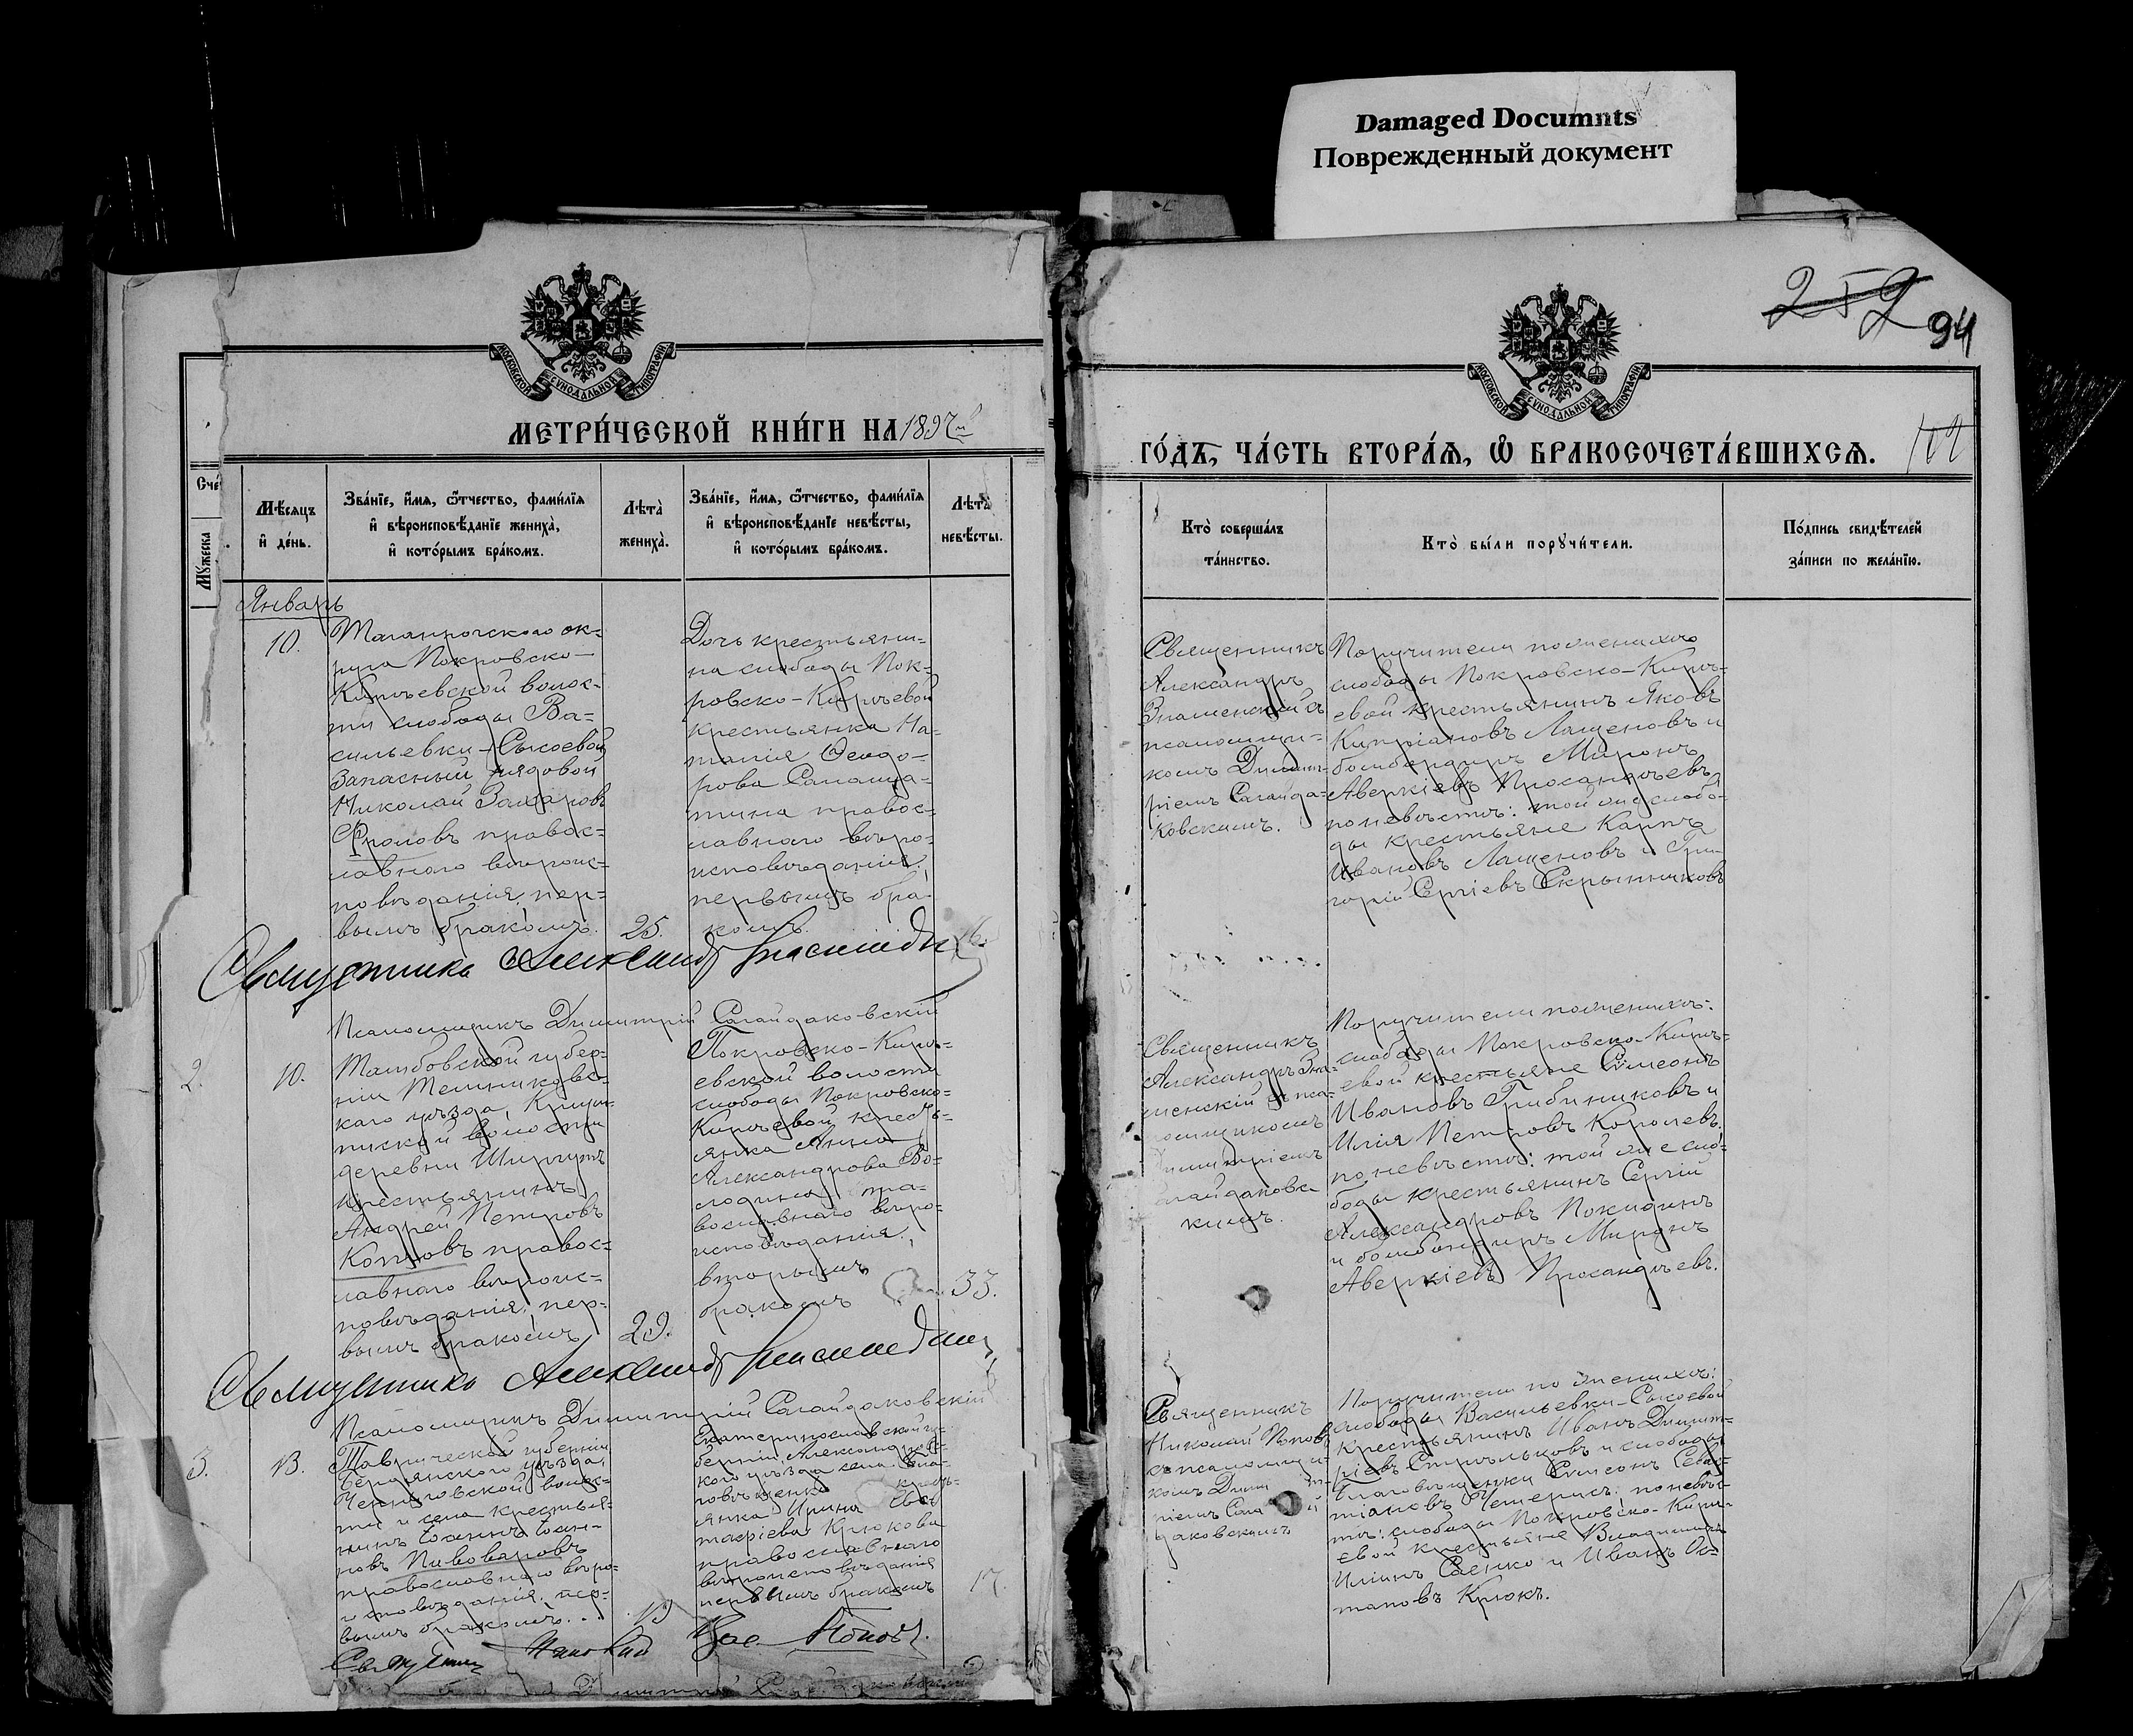 Damaged Documnts
Поврежденный документ
252
94
МОСКОВСКОЙ СѴНОДАЛЬНОЙ ТИПОГРАФІИ
МОСКОВСКОЙ СѴНОДАЛЬНОЙ ТИПОГРАФІИ
МЕТРИ́ЧЕСКОЙ КНИ́ГИ НА 1897й
ГО́ДЪ, ЧА́СТЬ ВТОРА́Ѧ, Ѽ БРАКОСОЧЕТА́ВШИХСѦ.
Сче́
Му́жеска
Мѣ́сяцъ
и҆ де́нь.
Зва́нїе, и҆́мя, ѻ҆́тчество, фами́лїя
и҆ вѣроисповѣ́данїе жениха̀,
и҆ кото́рымъ бра́комъ.
Лѣ́та
жениха̀.
Зва́нїе, и҆́мя, ѻ҆́тчество, фами́лїя
и҆ вѣроисповѣ́данїе невѣ́сты,
и҆ кото́рымъ бра́комъ.
Лѣ́та
невѣ́сты.
Кто̀ соверша́лъ
та́инство.
Кто̀ бы́ли порꙋчи́тели.
По́дпись свидѣ́телей
за́писи по жела́нїю.
Январь
10.
Таганрогскаго ок-
руга Покровско-
Кирѣевской волос-
ти слободы Ва-
сильевки-Сысоевой
Запасный рядовой
Николай Захаровъ
Фроловъ правос-
лавнаго вѣроис-
повѣданія, пер-
вымъ бракомъ.
25.
Дочь крестьяни-
на слободы Пок-
ровско-Кирѣевой
крестьянка На-
талія Ѳеодо-
рова
правос-
лавнаго вѣро-
исповѣданія,
первымъ бра-
комъ.
Священникъ
Александръ
Знаменскій съ
псаломщи-
комъ Димит-
ріемъ Сагайда-
ковскимъ.
Поручители по женихѣ
слободы Покровско-Кирѣ-
евой крестьянинъ Яковъ
Кипріановъ Лащеновъ и
бомбардиръ Миронъ
Аверкіевъ Просандѣевъ,
по невѣстѣ: той же слобо-
ды крестьяне Карпъ
Ивановъ Лащеновъ и Гри-
горій Сергіевъ Скрынниковъ
Священникъ Александръ Знаменскій
Псаломщикъ Димитрій Сагайдаковскій
2.
10.
Тамбовской губер-
ніи Темниковс-
каго уѣзда,
волости
деревни
крестьянинъ
Андрей Петровъ
Котловъ правос-
лавнаго вѣроис-
повѣданія, пер-
вымъ бракомъ
29.
Покровско-Кирѣ-
евской волости
слободы Покровско-
Кирѣевой кресть-
янка Анна
Александрова Во-
лодина пра-
вославнаго вѣро-
исповѣданія,
вторымъ
бракомъ
33.
Священникъ
Александръ Зна-
менскій съ пса-
ломщикомъ
Димитріемъ
Сагайдаковс-
кимъ.
Поручители по женихѣ:
слободы Покровско-Кирѣ-
евой крестьяне Симеонъ
Ивановъ Грибиниковъ и
Илія Петровъ Королевъ,
по невѣстѣ: той же сло-
боды крестьянинъ Сергій
Александровъ Покидинъ
и бомбардиръ Миронъ
Аверкіевъ Просандѣевъ.
Священникъ Александръ Знаменскій
Псаломщикъ Димитрій Сагайдаковскій
3.
13.
Таврической губерніи
Бердянскаго уѣзда,
Черниговской волос-
ти и села крестья-
нинъ Іоаннъ Іоан-
новъ Пивоваровъ
православнаго вѣро-
исповѣданія, пер-
вымъ бракомъ.
19
Екатеринославской гу-
берніи Александровс-
каго уѣзда села Бла-
говѣщенки кресть-
янка Ирина Евс-
тафіева Крюкова
православнаго
вѣроисповѣданія
первымъ бракомъ
17.
Священникъ
Николай Поповъ
съ псаломщи-
комъ Димит-
ріемъ Сагай-
даковскимъ
Поручители по женихѣ:
слободы Васильевки-Сысоевой
крестьянинъ Иванъ Димит-
ріевъ Стрѣльковъ и слободы
Благовѣщенки Симеонъ Севас-
тіановъ Чемерисъ; по невѣс-
тѣ: слободы Покровско-Кирѣ-
евой крестьяне Владимиръ
Илiинъ Саенко и Иванъ Ос-
таповъ Крюкъ.
Священникъ Николай Вас. Поповъ.